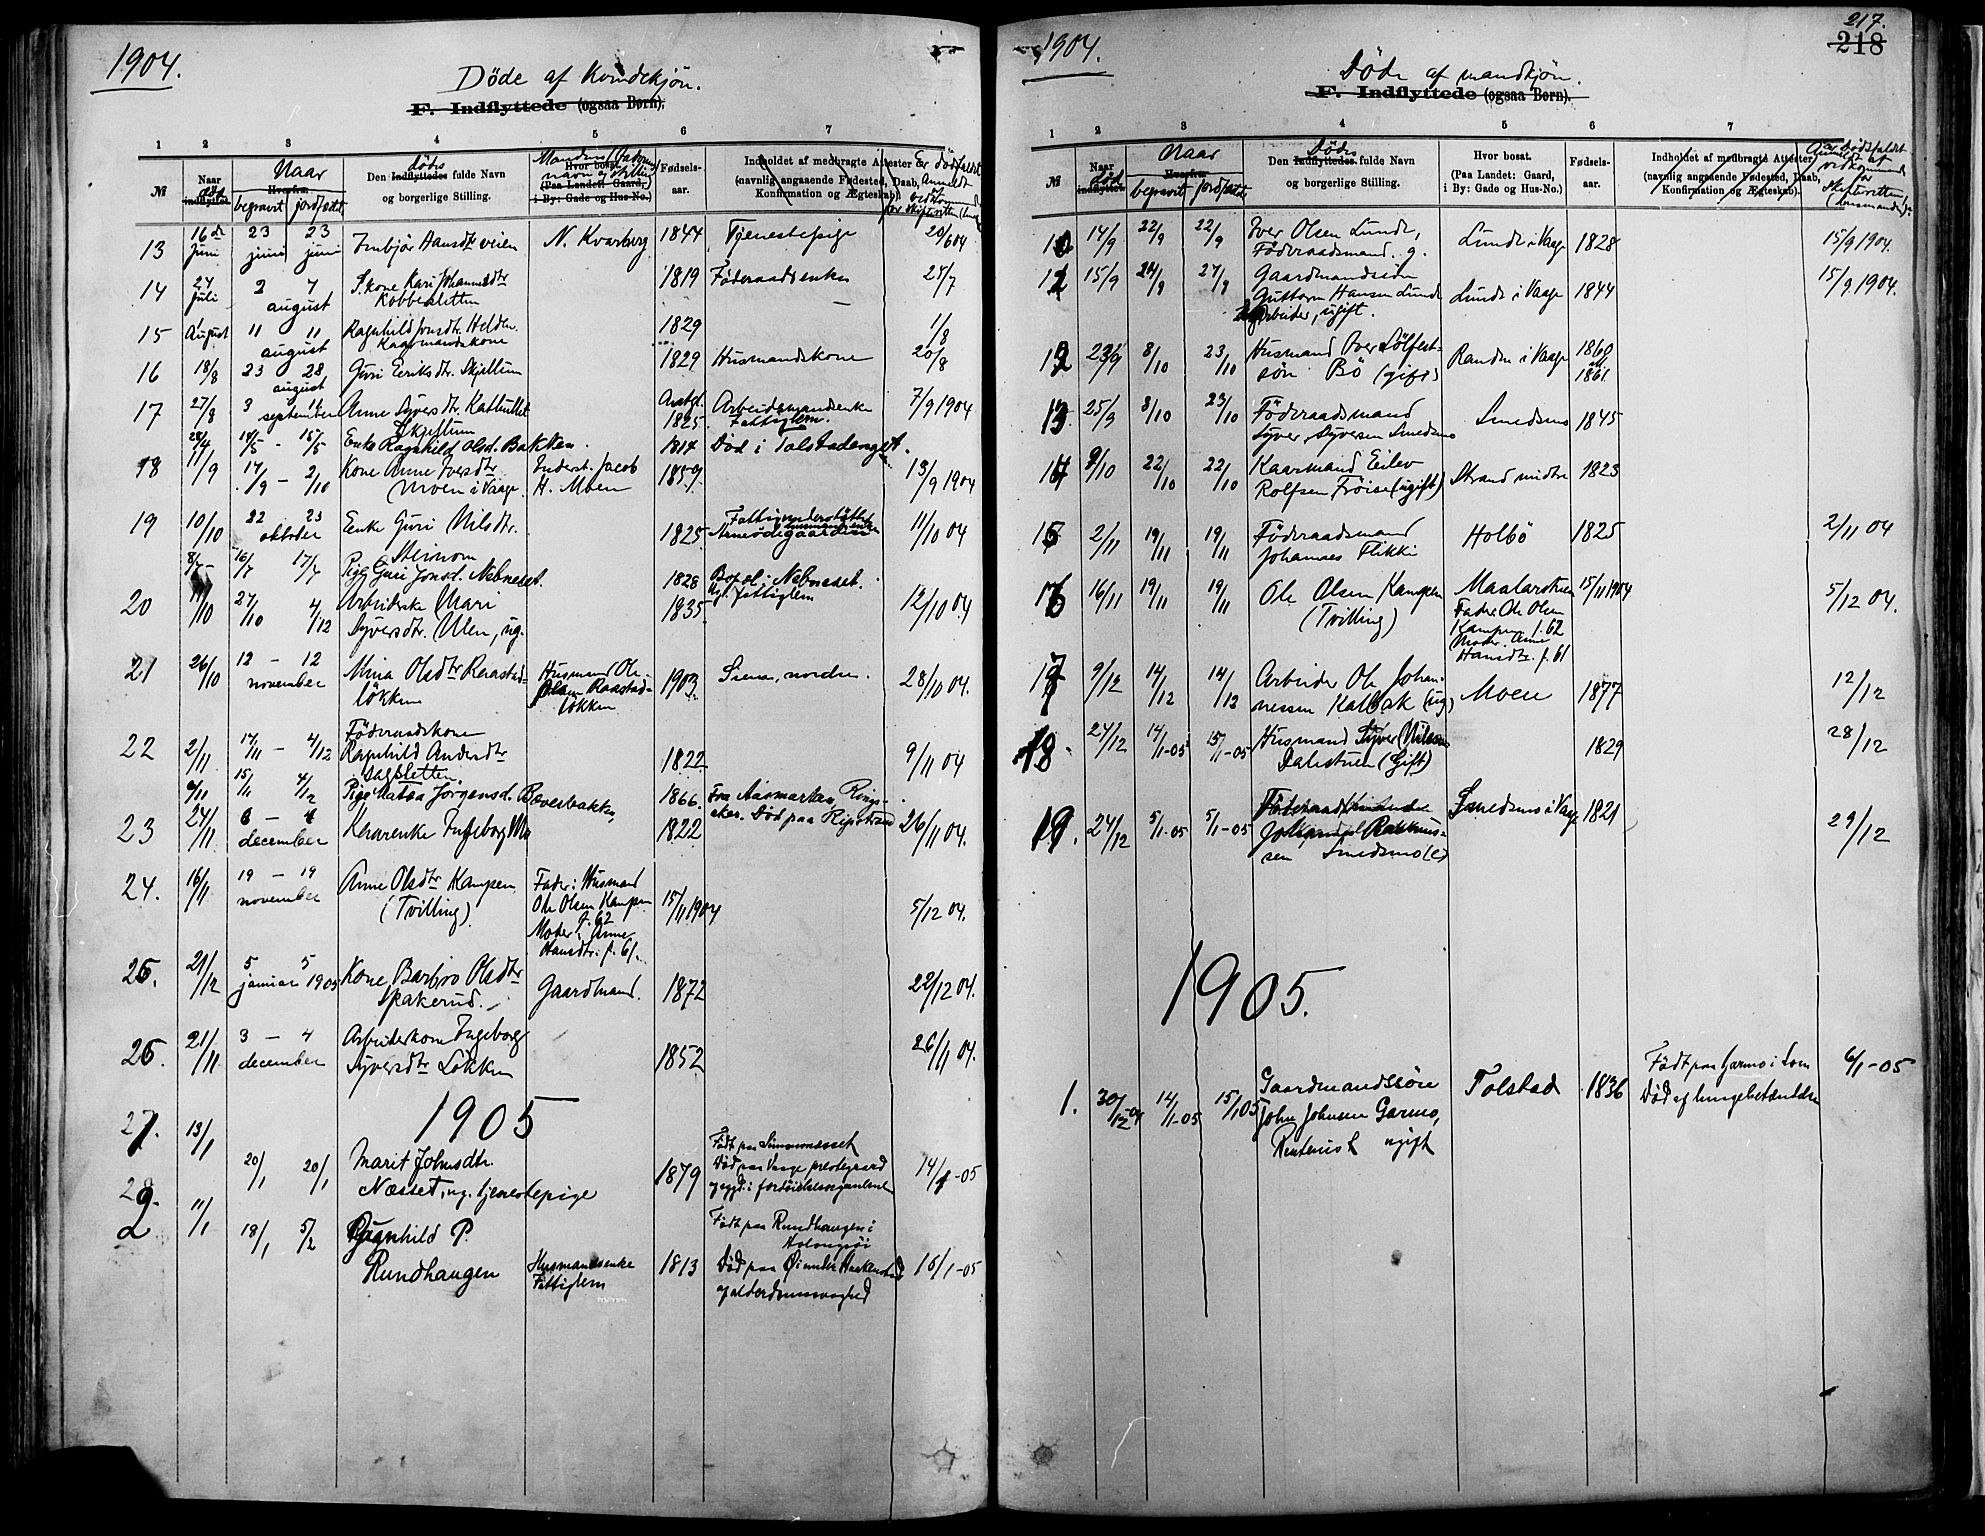 1904.
Döde af Kvindekjøn.
F. Indflyttede (ogsaa Børn).
1 2 3 4 5 6 7
№ Naar död indflyttet. Naar Hvorfra. begravet jordfæstet Den dødes Indflyttedes fulde Navn og borgerlige Stilling. Hvor bosat. navn og stilling (Paa Landet: Gaard, i By: Gade og Hus-No.) Fødsels-aar. Indholdet af medbragte Attester (navnlig angaaende Fødested, Daab, Konfirmation og Ægteskab). Er dödsfaldet Anmeldt
13 16de Juni 23 juni 23 juni Imbjør Hansdtr veien N. Kvarberg 1844 Tjenestepige 20/6 04
14 24 Juli 2 7 august S. kone Kari Johannesdtr 1819 Föderaadsenke 25/7
Kobbersletten
15 1 August 11 11 august Ragnhild Jonsdtr. Helden. 1829 1/8
Kaarmandskone
16 18/8 23 28 august Guri Eriksdtr. Skjellum 1829 Husmandskone 20/8
17 27/8 3 11 september Anne Syversdtr. 1825 Arbeidsmandsenke 7/9 1904
Skjellum Fattiglem.
28/4 14/5 - 15/5 Enke Ragnhild Olsd. Bakken. 1814 Död i Tolstadenget.
18 11/9 17/9 - 2/10 Kone Anne Iversdtr Inderst. Jacob 1859. 13/9 1904
Moen i Vaage H. Moen
19 10/10 22 23 oktober Enke Guri Nilsdtr. 1825 11/10 04
Steinom
8/7 - 16/7 17/7 Pige Guri Jonsd. Nebneset. 1828 Bopel: Nebneset.
fattiglem
20 11/10 27/10 4/12 Arbeiderske Mari 1835 12/10 04.
Syversdtr. Ulen, ug.
21 26/10 12 - 12 november Mina Olsdtr Raastad- Husmand Ole 1903. nordre. 28/10 04.
løkken Olsen Raastad-
løkken
22 2/11 17/11 - 4/12 Föderaadskone
Ragnhild Andersdtr 1822 9/11 04
Sagsletten.
9/11 15/11 4/12 Pige Matea Jörgensd. Bæverbakken, 1866. Fra Aasmarken, Rings-
aker. Död paa
23 24/11 6 - 4 december Kaarenke Ingeborg Mo 1822 26/11 04.
24. 16/11 19 - 19 november Anne Olsdtr Kampen Fader: Husmand 15/11 1904 5/12 04.
(Tvilling). Ole Olsen Kampen
f. 62
Moder: Anne
Hansdtr. f. 61.
25. 21/12 5 5 januar 1905 Kone Barbro Olsdtr Gaardmand. 1872 22/12 04.
Spakerud.
26. 21/11 3 - 4 december Arbeiderkone Ingeborg 1852 26/11 04.
Syversdtr Løkken
1905
1. 13/1 20/1 20/1 Marit Johnsdtr. 1879 14/1-05
Næsset, ug. tjenestepige
Død paa Vaage prestegaard
2 11/1 18/1 5/2 Ragnhild P. Født paa Rundhaugen i
Rundhaugen Husmandsenke 1813 16/1-05
Fattiglem
af alderdomssvaghed
217.
218
1904.
Döde af mandkjön.
F. Indflyttede (ogsaa Børn).
1 2 3 4 5 6 7
№ Naar død indflyttet. Naar Hvorfra. begravet jordfæstet Den Dødes Indflyttedes fulde Navn og borgerlige Stilling. Hvor bosat. (Paa Landet: Gaard, i By: Gade og Hus-No.) Fødsels-aar. Indholdet af medbragte Attester (navnlig angaaende Fødested, Daab, Konfirmation og Ægteskab). Er dödsfaldet anmeldt af vedkommende for Skifteretten (Lensmanden)?
10 14/9 22/9 22/9 Iver Olsen Lunde, Lunde i Vaage 1828 15/9 1904.
Föderaadsmand. g.
15/9 24/9 27/9 Gaardmandssön Lunde i Vaage 1844 15/9 1904.
Guttorm Hansen Lunde
Arbeider, ugift.
12 23/9 8/10 23/10 Husmand Iver Sølfest- Randen i Vaage 1860
sön Bö (gift) 1861.
13 25/9 8/10 23/10 Föderaadsmand Smedsmo 1845
Syver Syversen Smedsmo
14 9/10 22/10 22/10 Kaarmand Eilev Strand midtre 1823
Rolfsen Fröise (ugift)
15 2/11 19/11 19/11 Föderaadsmand Holbö 1825 2/11 04
Johannes Flikki
16 16/11 19/11 19/11 Ole Olsen Kampen 15/11 1904 5/12 04.
(Tvilling) Fader Ole Olsen
Kampen f. 62
Moder Anne
Hansdtr. f. 61
17 9/12 14/12 14/12 Arbeider Ole Johan- Moen 1877 12/12
nessen Kalbak (ug)
18. 24/12 14/1-05 15/1-05 Husmand Syver Nilsen 1829 28/12
Dalstuen (Gift)
19. 24/12 5/1-05 5/1-05 Smedsmo i Vaage 1821 29/12
sen Smedsmo (e)
1905.
1. 30/12-04 14/1-05 15/1 05 Gaardmandssön Tolstad 1836 Født paa Garmo i Lom 6/1-05
John Johnsen Garmo, Död af lungebetændelse
Rentenist ugift